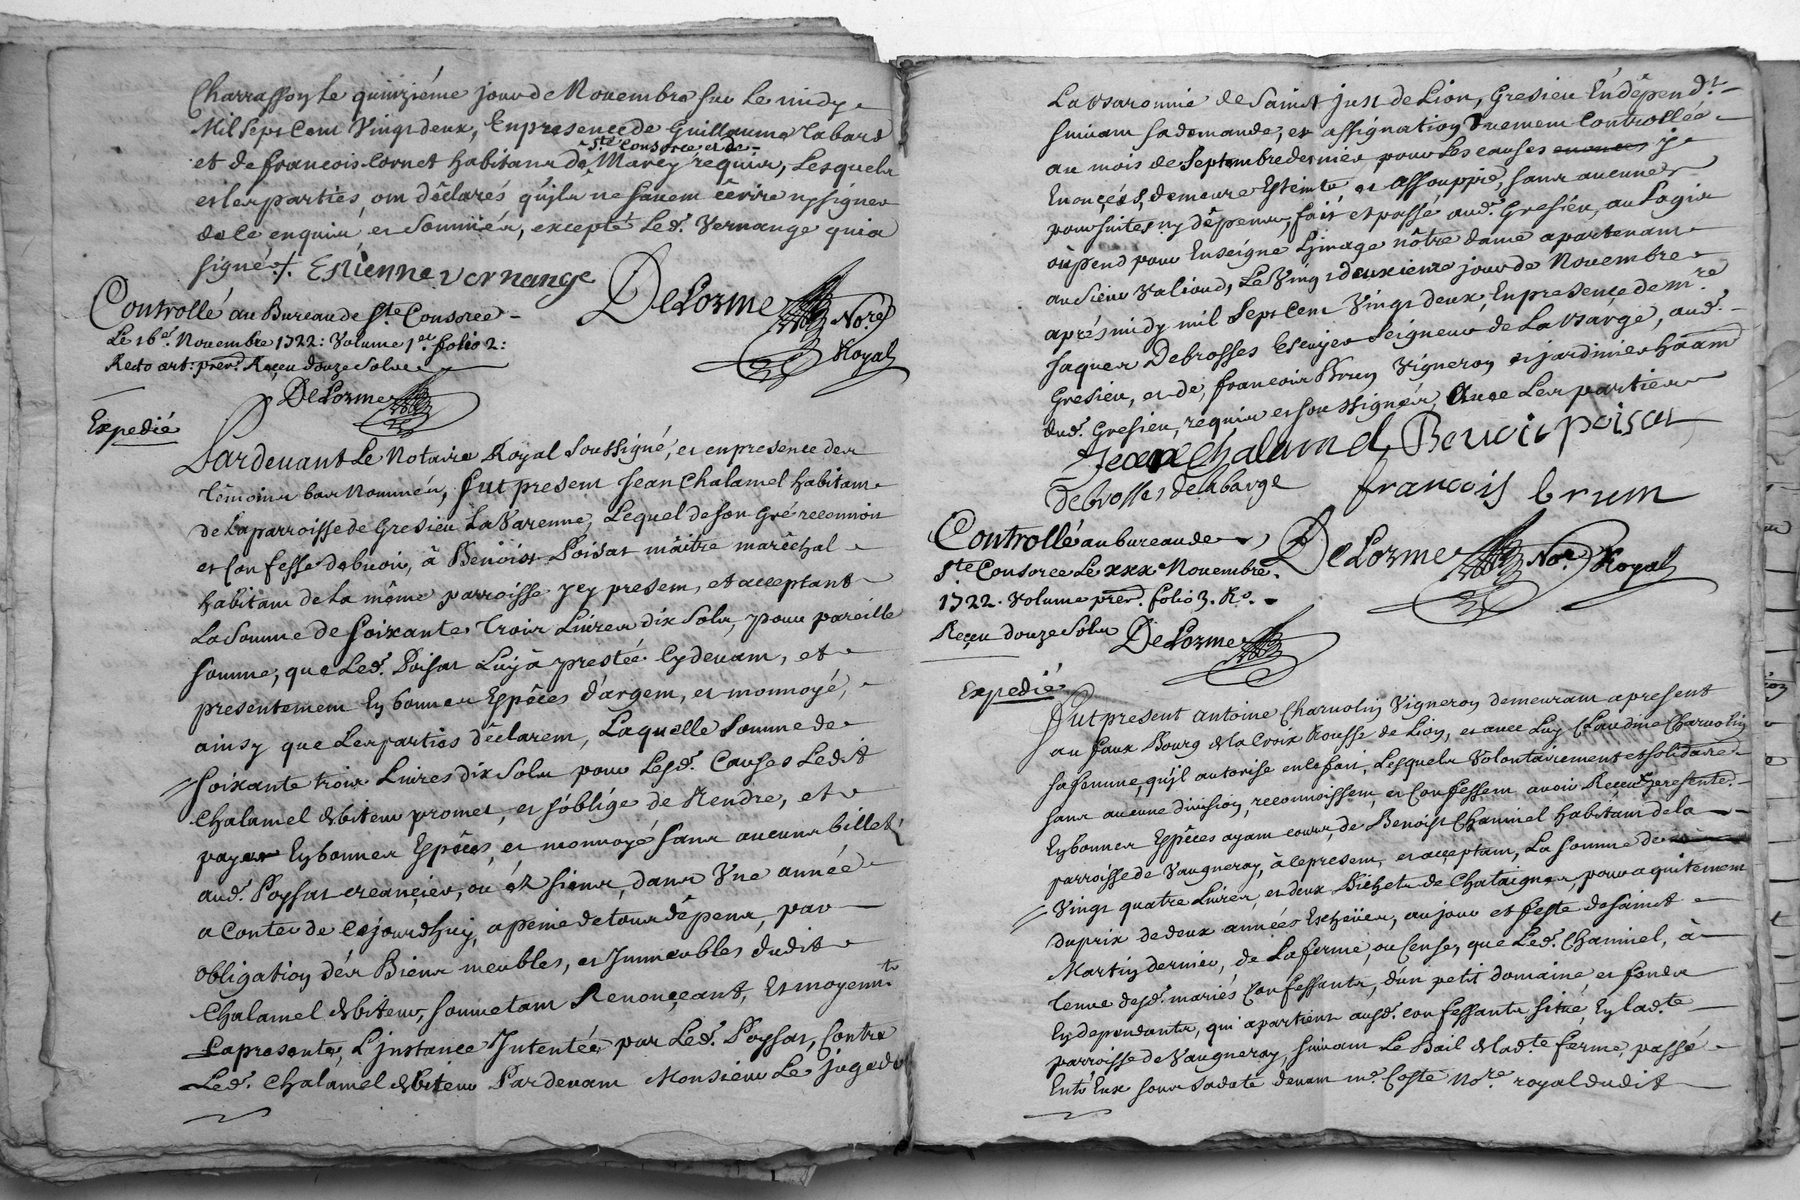 Charrassoy le quinziéme jour de Novembre sur le midy
Mil sept cent vingt deux, En presence de Guillaume Tabard
ste Consorce et de
et de francois Cornet habitans de Marcy requis, Lesquels
et les parties, ont déclarés qu'ils ne savent écrire ny signer
de ce enquis et sommés, excepté Led. Vernange qui a
signé ./. Estienne vernange
DeLorme Nore Royal
Controllé au Bureau de Ste Consorce
Le 16e. Novembre 1722: Volume 1er folio 2:
Recto art: prer. Reçeu douze Sols
DeLorme
Expedié
Pardevant Le Notaire Royal soussigné, et en presence des
témoins bas nommés, fut present Jean Chalamel habitant
de la parroisse de Gresieu La Varenne, Lequel de son gré reconnoit
et confesse debvoir, à Benoist Poisat maître maréchal
habitant de la même parroisse Icy present, et acceptant
La somme de soixante trois Livres dix sols, pour pareille
somme, que Led. Poisat Luy à prestée cydevant, et
presentement En bonnes Espéces d'argent, et monnoyé,
ainsy que Les parties déclarent, Laquelle somme de
soixante trois Livres dix sols pour Lesd. Causes Ledit
Chalamel debiteur promet, et s'oblige de Rendre, et
payer En bonnes Espéces, et monnoyé sans aucuns billets
aud. Poysat creançier, ou éz siens, dans Une année
a conter de cejourdhuy, a peine de tous dépens, par
obligation dés Biens meubles, et Immeubles dudit
Chalamel debiteur, soumetant Renonçeant, Et moyennt
La presente, L'instance Intentée par Led. Poysat, Contre
Led. Chalamel debiteur Pardevant Monsieur Le juge de
La Baronnie de Saint just de Lion, Gresieu En dépendt.
suivant sa demande, et assignation Duement Controllée
au mois de Septembre dernier pour Les causes y
Enonçées, demeure Esteinte et assouppie, sans aucunes
poursuites ny dépens, fait et passé aud. Gresieu, au Logis
où pend pour Enseigne L'image nôtre dame apartenant
au sieur Valioud, Le Vingt deuxieme jour de Novembre
aprés midy mil sept cent Vingt deux, En presence de mre
Jaques Debrosses Escuyer seigneur de La Barge, aud.
Gresieu, et de francois Brun Vigneron et jardinier habitant
dud. Gresieu, requis et soussignés, Avec Les parties
Jean Chalamel Benoit poisat
Debrosses delabarge francois brum
Controllé au bureau de
Ste Consorce Le xxx Novembre
1722. Volume prer. folio 3. Ro.
Reçeu douze Sols DeLorme
DeLorme Nore Royal
Expedié
Fut present Antoine Charvolin Vigneron demeurant a present
au faux Bourg de la Croix Rousse de Lion, et avec Luy Claudine Charvolin
sa femme, qu'il autorise en le fait, Lesquels Volontairement et solidaire
sans aucune division, reconnoissent, et Confessent avoir Reçeu presente.
En bonnes Espéces ayant cours, de Benoist Chaninel habitant de la
parroisse de Vaugneray, à ce present, et acceptant, La somme de
Vingt quatre Livres, et deux Bichets de Chataignes, pour aquitement
du prix de deux années Escheües, au jour et feste de saint
Martin dernier, de La ferme, ou Cense, que Led. Chaninel, à
tenue desd. mariés Confessants, d'un petit domaine et fonds
En dependants, qui apartient ausd. confessants situé, En lad.te
parroisse de Vaugneray, suivant Le Bail de lad.te ferme, passé
Entr'Eux sous sa date devant me. Coste Nore. royal dudit